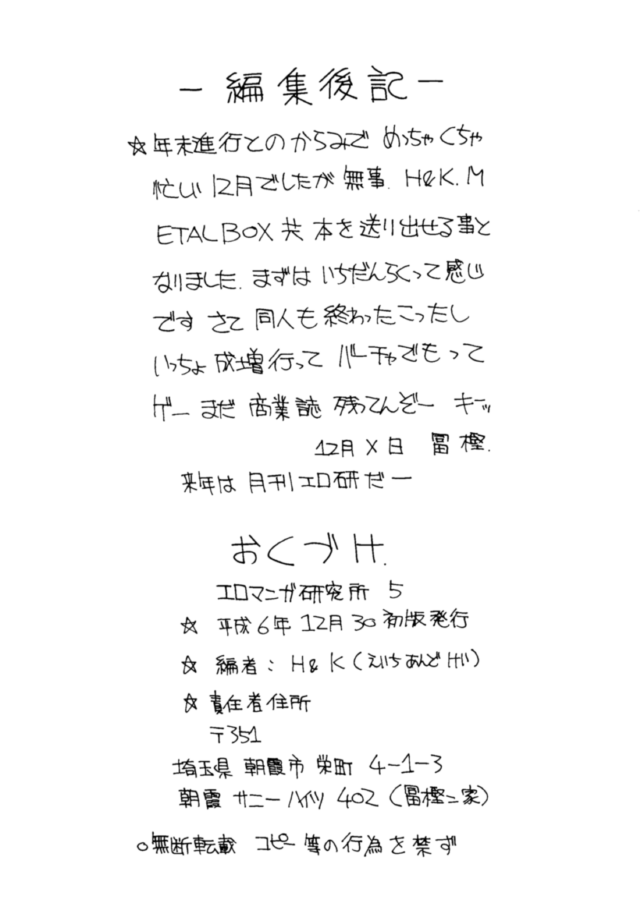 ー編集後記ー
☆年末進行とのからみで めっちゃくちゃ
忙しい12月でしたが 無事. H&K. M
ETAL BOX 共 本を送り出せる事と
なりました. まずは いちだんらくって感じ
です さて 同人も 終わったこったし
いっちょ 成増行って バーチャでもって
ゲー まだ 商業誌 残ってんぞー キーッ
12月 X 日 冨樫.
来年は 月刊エロ研だー
おくづけ.
エロマンガ研究所 5
☆ 平成6年 12月 30 初版発行
☆ 編者: H&K (えいちあんどけい)
☆ 責任者住所
〒351
埼玉県 朝霞市 栄町 4-1-3
朝霞 サニーハイツ 402 (冨樫ニ家)
○無断転載 コピー 等の行為を禁ず